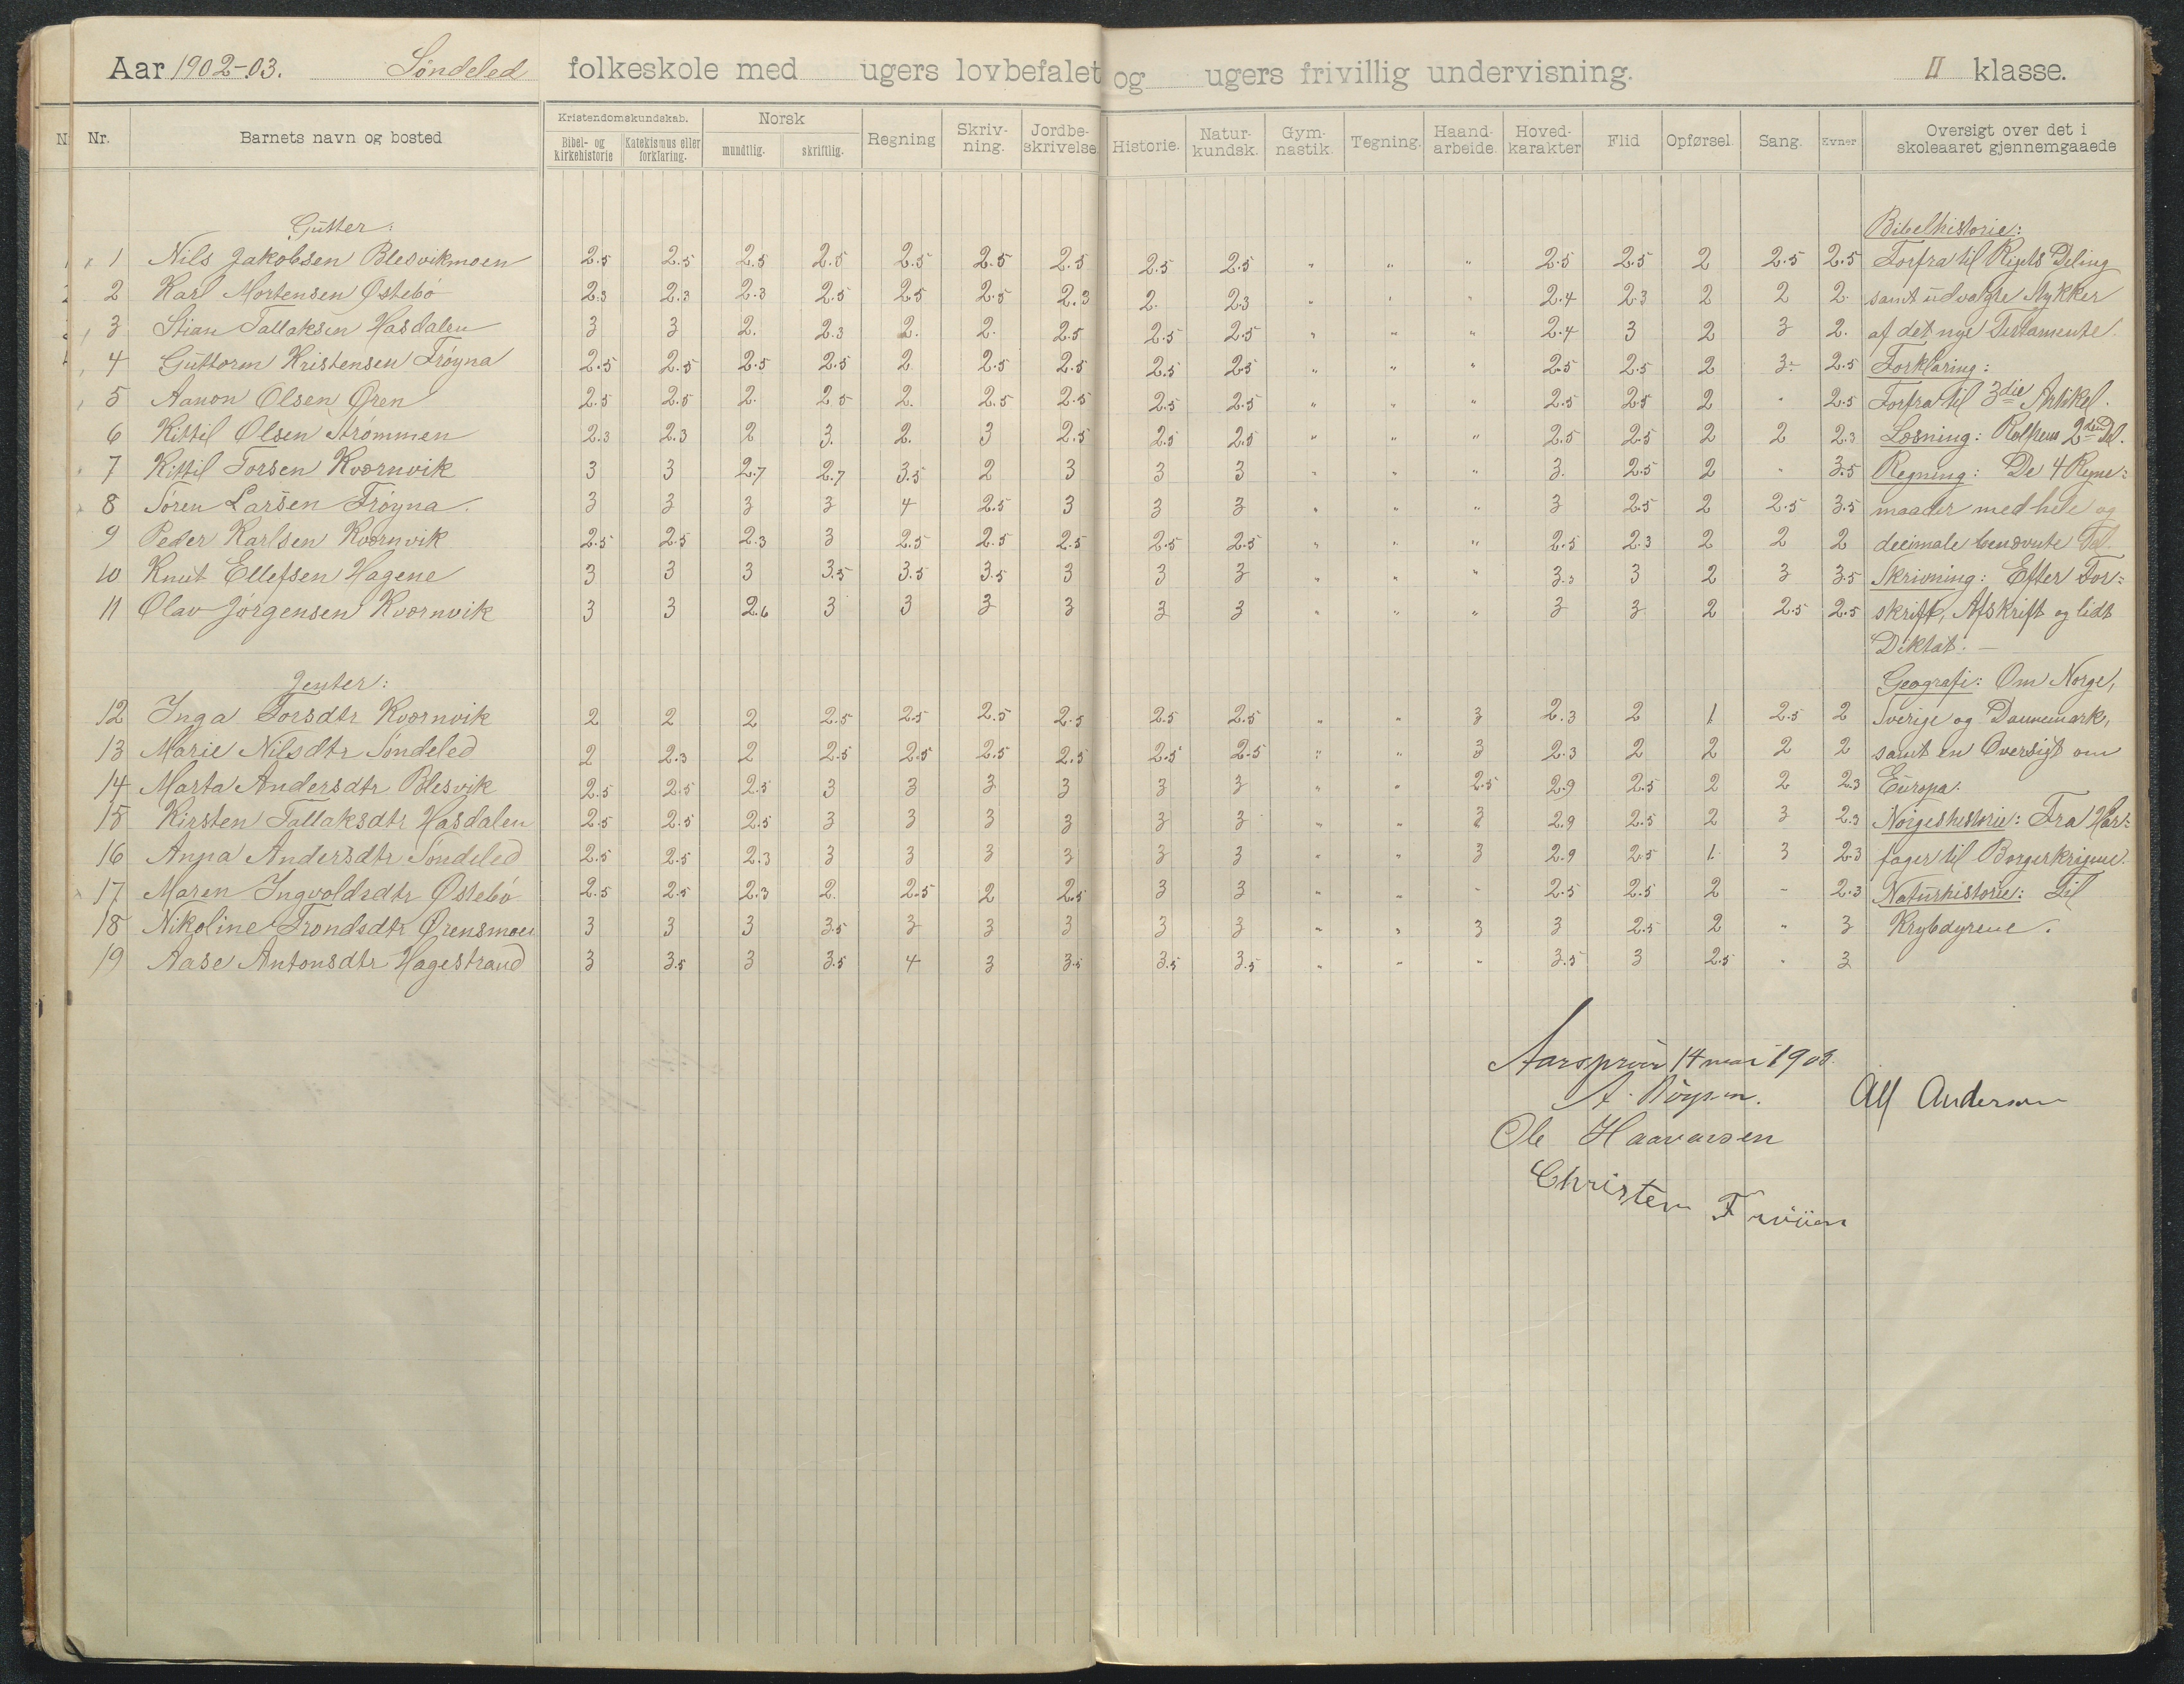 Aar 1902-03. Søndeled folkeskole med ugers lovbefalet og ugers frivillig undervisning. II klasse.
N Nr. Barnets navn og bosted Kristendomskundskab. Bibel- og kirkehistorie Katekismus eller forklaring. Norsk mundtlig. skriftlig. Regning Skriv-ning. Jordbe-skrivelse. Historie. Natur-kundsk. Gym-nastik. Tegning. Haand-arbeide. Hoved-karakter Flid Opførsel. Sang. Evner Oversigt over det i skoleaaret gjennemgaaede
Gutter: Bibelhistorie:
1 Nils Jakobsen Blesvikmoen 2.5 2.5 2.5 2.5 2.5 2.5 2.5 2.5 2.5 " " " 2.5 2.5 2 2.5 2.5 Forfra til Rigets Deling
2 Karl Mortensen Østebö 2.3 2.3 2.3 2.5 2.5 2.5 2.3 2. 2.3 " " " 2.4 2.3 2 2 2. samt udvalgte Stykker
3 Stian Tallaksen Hasdalen 3 3 2. 2.3 2. 2. 2.5 2.5 2.5 " " " 2.4 3 2 3 2. af det nye Testamente.
4 Guttorm Kristensen Fröyna 2.5 2.5 2.5 2.5 2 2.5 2.5 2.5 2.5 " " " 2.5 2.5 2 3- 2.5 Forklaring:
5 Aanon Olsen Øren 2.5 2.5 2. 2.5 2. 2.5 2.5 2.5 2.5 " " " 2.5 2.5 2 " 2.5 Forfra til 3die Artikel.
6 Kittil Olsen Strømmen 2.3 2.3 2 3. 2. 3 2.5 2.5 2.5 " " " 2.5 2.5 2 2 2.3 Læsning: Rolfsens 2den Del.
7 Kittil Torsen Kværnvik 3 3 2.7 2.7 3.5 2 3 3 3 " " " 3. 2.5 2 " 3.5 Regning: De 4 Regne-
8 Søren Larsen Fröyna. 3 3 3 3 4 2.5 3 3 3 " " " 3 2.5 2 2.5 3.5 maader med hele og
9 Peder Karlsen Kværnvik 2.5 2.5 2.3 3 2.5 2.5 2.5 2.5 2.5 " " " 2.5 2.3 2 2 2 decimale benævnte Tal.
10 Knut Ellefsen Hagene 3 3 3 3.5 3.5 3.5 3 3 3 " " " 3.3 3 2 3 3.5 Skrivning: Efter For-
11 Olav Jørgensen Kværnvik 3 3 2.6 3 3 3 3 3 3 " " " 3 3 2 2.5 2.5 skrift, Afskrift og lidt
Diktat. —
Jenter: Geografi: Om Norge,
12 Inga Torsdtr Kværnvik 2 2 2 2.5 2.5 2.5 2.5 2.5 2.5 " " 3 2.3 2 1 2.5 2 Sverige og Dannemark,
13 Marie Nilsdtr Søndeled 2 2.3 2 2.5 2.5 2.5 2.5 2.5 2.5 " " 3 2.3 2 2 2 2 samt en Oversigt om
14 Marta Andersdtr Blesvik 2.5 2.5 2.5 3 3 3 3 3 3 " " 2.5 2.9 2.5 2 2 2.3 Europa.
15 Kirsten Tallaksdtr Hasdalen 2.5 2.5 2.5 3 3 3 3 3 3 " " 3 2.9 2.5 2 3 2.3 Norgeshistorie: Fra Haar-
16 Anna Andersdtr Søndeled 2.5 2.5 2.3 3 3 3 3 3 3 " " 3 2.9 2.5 1. 3 2.3 fager til Borgerkrigene.
17 Maren Ingvoldsdtr Østebö 2.5 2.5 2.3 2. 2.5 2 2.5 3 3 " " - 2.5 2.5 2 - 2.3 Naturhistorie: Til
18 Nikoline Trondsdtr Ørensmoen 3 3 3 3.5 3 3 3 3 3 " " 3 3 2.5 2 " 3 Krybdyrene.
19 Aase Antonsdtr Hagestrand 3 3.5 3 3.5 4 3 3.5 3.5 3.5 " " " 3.5 3 2.5 " 3
Aarsprøve 14 mai 1903.
A. Alf Andersen
Ole Haavarsen
Christen